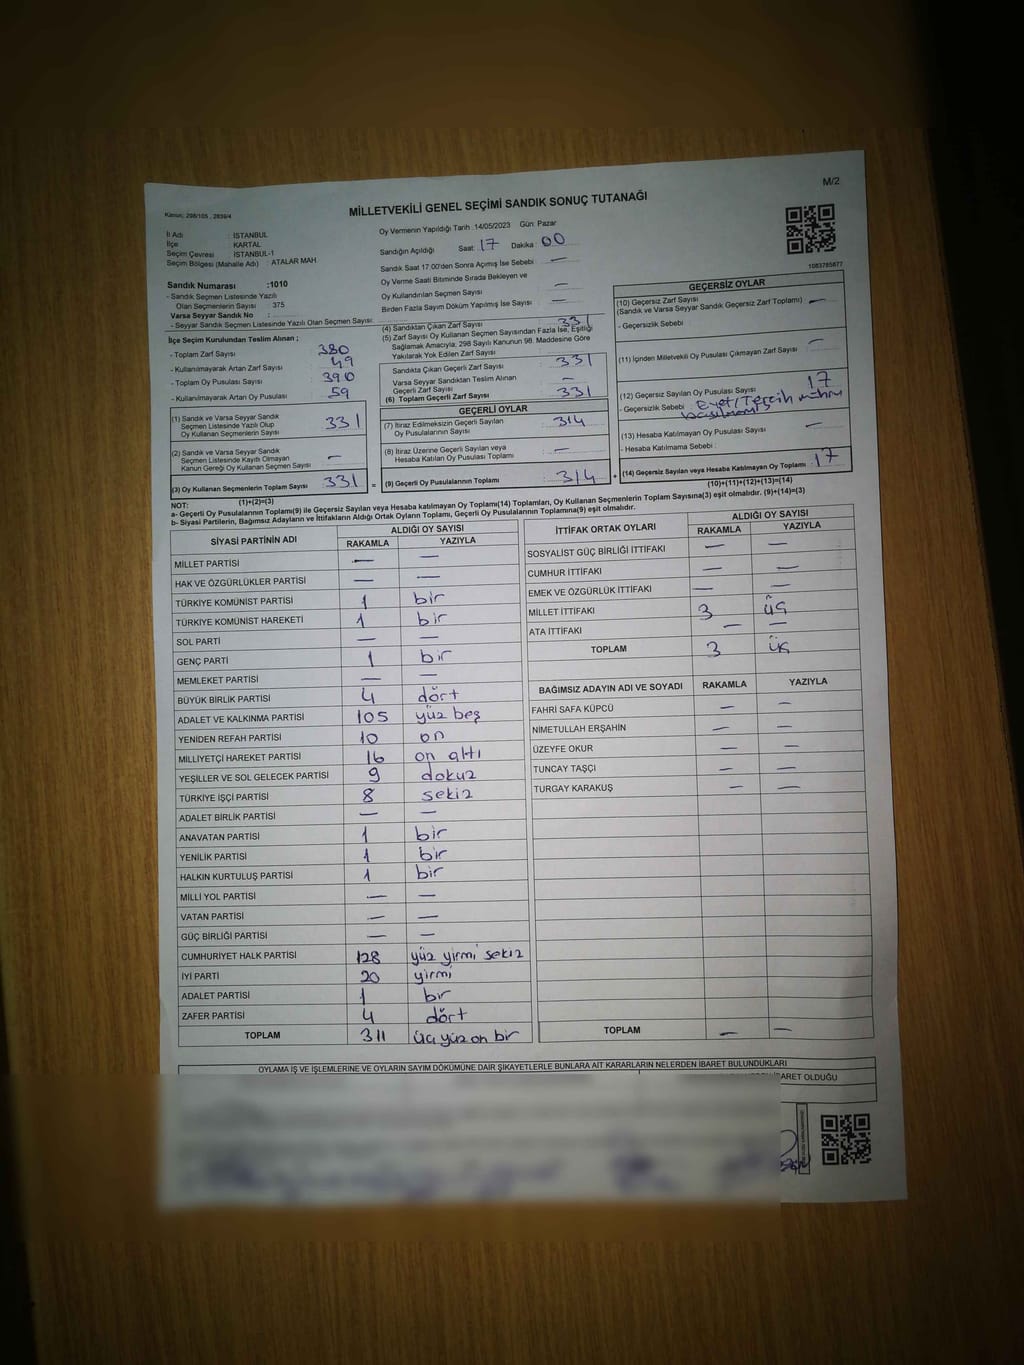 M/2
Kanun: 298/105 , 2839/4
MİLLETVEKİLİ GENEL SEÇİMİ SANDIK SONUÇ TUTANAĞI
İl Adı : İSTANBUL
İlçe : KARTAL
Seçim Çevresi : İSTANBUL-1
Seçim Bölgesi (Mahalle Adı) : ATALAR MAH.
Sandık Numarası :1010
- Sandık Seçmen Listesinde Yazılı
Olan Seçmenlerin Sayısı 375
Varsa Seyyar Sandık No :
- Seyyar Sandık Seçmen Listesinde Yazılı Olan Seçmen Sayısı:
Oy Vermenin Yapıldığı Tarih : 14/05/2023 Gün: Pazar
Sandığın Açıldığı Saat: 17 Dakika: 00
Sandık Saat 17:00'den Sonra Açımış İse Sebebi : —
Oy Verme Saati Bitiminde Sırada Bekleyen ve
Oy Kullandırılan Seçmen Sayısı : —
Birden Fazla Sayım Döküm Yapılmış İse Sayısı : —
1083785677
İlçe Seçim Kurulundan Teslim Alınan ;
- Toplam Zarf Sayısı : 380
- Kullanılmayarak Artan Zarf Sayısı : 49
- Toplam Oy Pusulası Sayısı : 390
- Kullanılmayarak Artan Oy Pusulası : 59
(1) Sandık ve Varsa Seyyar Sandık
Seçmen Listesinde Yazılı Olup
Oy Kullanan Seçmenlerin Sayısı : 331
(2) Sandık ve Varsa Seyyar Sandık
Seçmen Listesinde Kayıtlı Olmayan
Kanun Gereği Oy Kullanan Seçmen Sayısı : —
(3) Oy Kullanan Seçmenlerin Toplam Sayısı : 331
(1)+(2)=(3)
(4) Sandıktan Çıkan Zarf Sayısı : 331
(5) Zarf Sayısı Oy Kullanan Seçmen Sayısından Fazla İse, Eşitliği
Sağlamak Amacıyla, 298 Sayılı Kanunun 98. Maddesine Göre
Yakılarak Yok Edilen Zarf Sayısı :
Sandıkta Çıkan Geçerli Zarf Sayısı : 331
Varsa Seyyar Sandıktan Teslim Alınan
Geçerli Zarf Sayısı : —
(6) Toplam Geçerli Zarf Sayısı : 331
GEÇERLİ OYLAR
(7) İtiraz Edilmeksizin Geçerli Sayılan
Oy Pusulalarının Sayısı : 314
(8) İtiraz Üzerine Geçerli Sayılan veya
Hesaba Katılan Oy Pusulası Toplamı : —
= (9) Geçerli Oy Pusulalarının Toplamı : 314
GEÇERSİZ OYLAR
(10) Geçersiz Zarf Sayısı : —
(Sandık ve Varsa Seyyar Sandık Geçersiz Zarf Toplamı)
- Geçersizlik Sebebi :
(11) İçinden Milletvekili Oy Pusulası Çıkmayan Zarf Sayısı : —
(12) Geçersiz Sayılan Oy Pusulası Sayısı : 17
- Geçersizlik Sebebi : Evet/Tercih mührü
basılmamış
(13) Hesaba Katılmayan Oy Pusulası Sayısı : —
- Hesaba Katılmama Sebebi :
+ (14) Geçersiz Sayılan veya Hesaba Katılmayan Oy Toplamı : 17
(10)+(11)+(12)+(13)=(14)
NOT:
a- Geçerli Oy Pusulalarının Toplamı(9) ile Geçersiz Sayılan veya Hesaba katılmayan Oy Toplamı(14) Toplamları, Oy Kullanan Seçmenlerin Toplam Sayısına(3) eşit olmalıdır. (9)+(14)=(3)
b- Siyasi Partilerin, Bağımsız Adayların ve İttifakların Aldığı Ortak Oyların Toplamı, Geçerli Oy Pusulalarının Toplamına(9) eşit olmalıdır.
SİYASİ PARTİNİN ADI ALDIĞI OY SAYISI
RAKAMLA YAZIYLA
MİLLET PARTİSİ — —
HAK VE ÖZGÜRLÜKLER PARTİSİ — —
TÜRKİYE KOMÜNİST PARTİSİ 1 bir
TÜRKİYE KOMÜNİST HAREKETİ 1 bir
SOL PARTİ — —
GENÇ PARTİ 1 bir
MEMLEKET PARTİSİ — —
BÜYÜK BİRLİK PARTİSİ 4 dört
ADALET VE KALKINMA PARTİSİ 105 yüz beş
YENİDEN REFAH PARTİSİ 10 on
MİLLİYETÇİ HAREKET PARTİSİ 16 on altı
YEŞİLLER VE SOL GELECEK PARTİSİ 9 dokuz
TÜRKİYE İŞÇİ PARTİSİ 8 sekiz
ADALET BİRLİK PARTİSİ — —
ANAVATAN PARTİSİ 1 bir
YENİLİK PARTİSİ 1 bir
HALKIN KURTULUŞ PARTİSİ 1 bir
MİLLİ YOL PARTİSİ — —
VATAN PARTİSİ — —
GÜÇ BİRLİĞİ PARTİSİ — —
CUMHURİYET HALK PARTİSİ 128 yüz yirmi sekiz
İYİ PARTİ 20 yirmi
ADALET PARTİSİ 1 bir
ZAFER PARTİSİ 4 dört
TOPLAM 311 üç yüz on bir
İTTİFAK ORTAK OYLARI ALDIĞI OY SAYISI
RAKAMLA YAZIYLA
SOSYALİST GÜÇ BİRLİĞİ İTTİFAKI — —
CUMHUR İTTİFAKI — —
EMEK VE ÖZGÜRLÜK İTTİFAKI — —
MİLLET İTTİFAKI 3 üç
ATA İTTİFAKI — —
TOPLAM 3 üç
BAĞIMSIZ ADAYIN ADI VE SOYADI RAKAMLA YAZIYLA
FAHRİ SAFA KÜPCÜ — —
NİMETULLAH ERŞAHİN — —
ÜZEYFE OKUR — —
TUNCAY TAŞÇI — —
TURGAY KARAKUŞ — —
TOPLAM — —
OYLAMA İŞ VE İŞLEMLERİNE VE OYLARIN SAYIM DÖKÜMÜNE DAİR ŞİKAYETLERLE BUNLARA AİT KARARLARIN NELERDEN İBARET BULUNDUKLARI
İBARET OLDUĞU